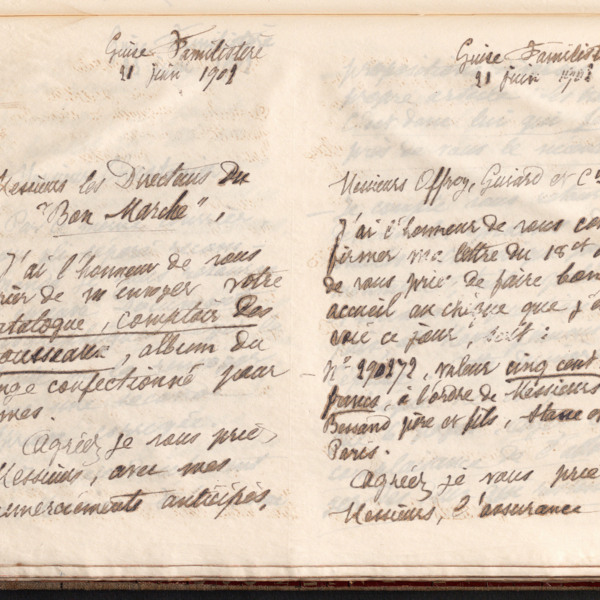 Guise Familistère
21 juin 1901
Messieurs les Directeurs du
"Bon Marché",
J'ai l'honneur de vous
prier de m'envoyer votre
catalogue, comptoir des
trousseaux, album du
linge confectionné pour
Agréez je vous prie,
Messieurs, avec mes
remerciements anticipés,
Guise Familistère
21 juin 1901
Messieurs Offroy, Guiard et Cie
J'ai l'honneur de vous con
firmer ma lettre du 18 ct
de vous prier de faire bon
accueil au chèque que j'
voie ce jour, soit :
N° 290272, valeur cinq cent
francs, à l'ordre de Messieurs
père et fils,
Paris.
Agréez je vous prie
Messieurs, l'assurance